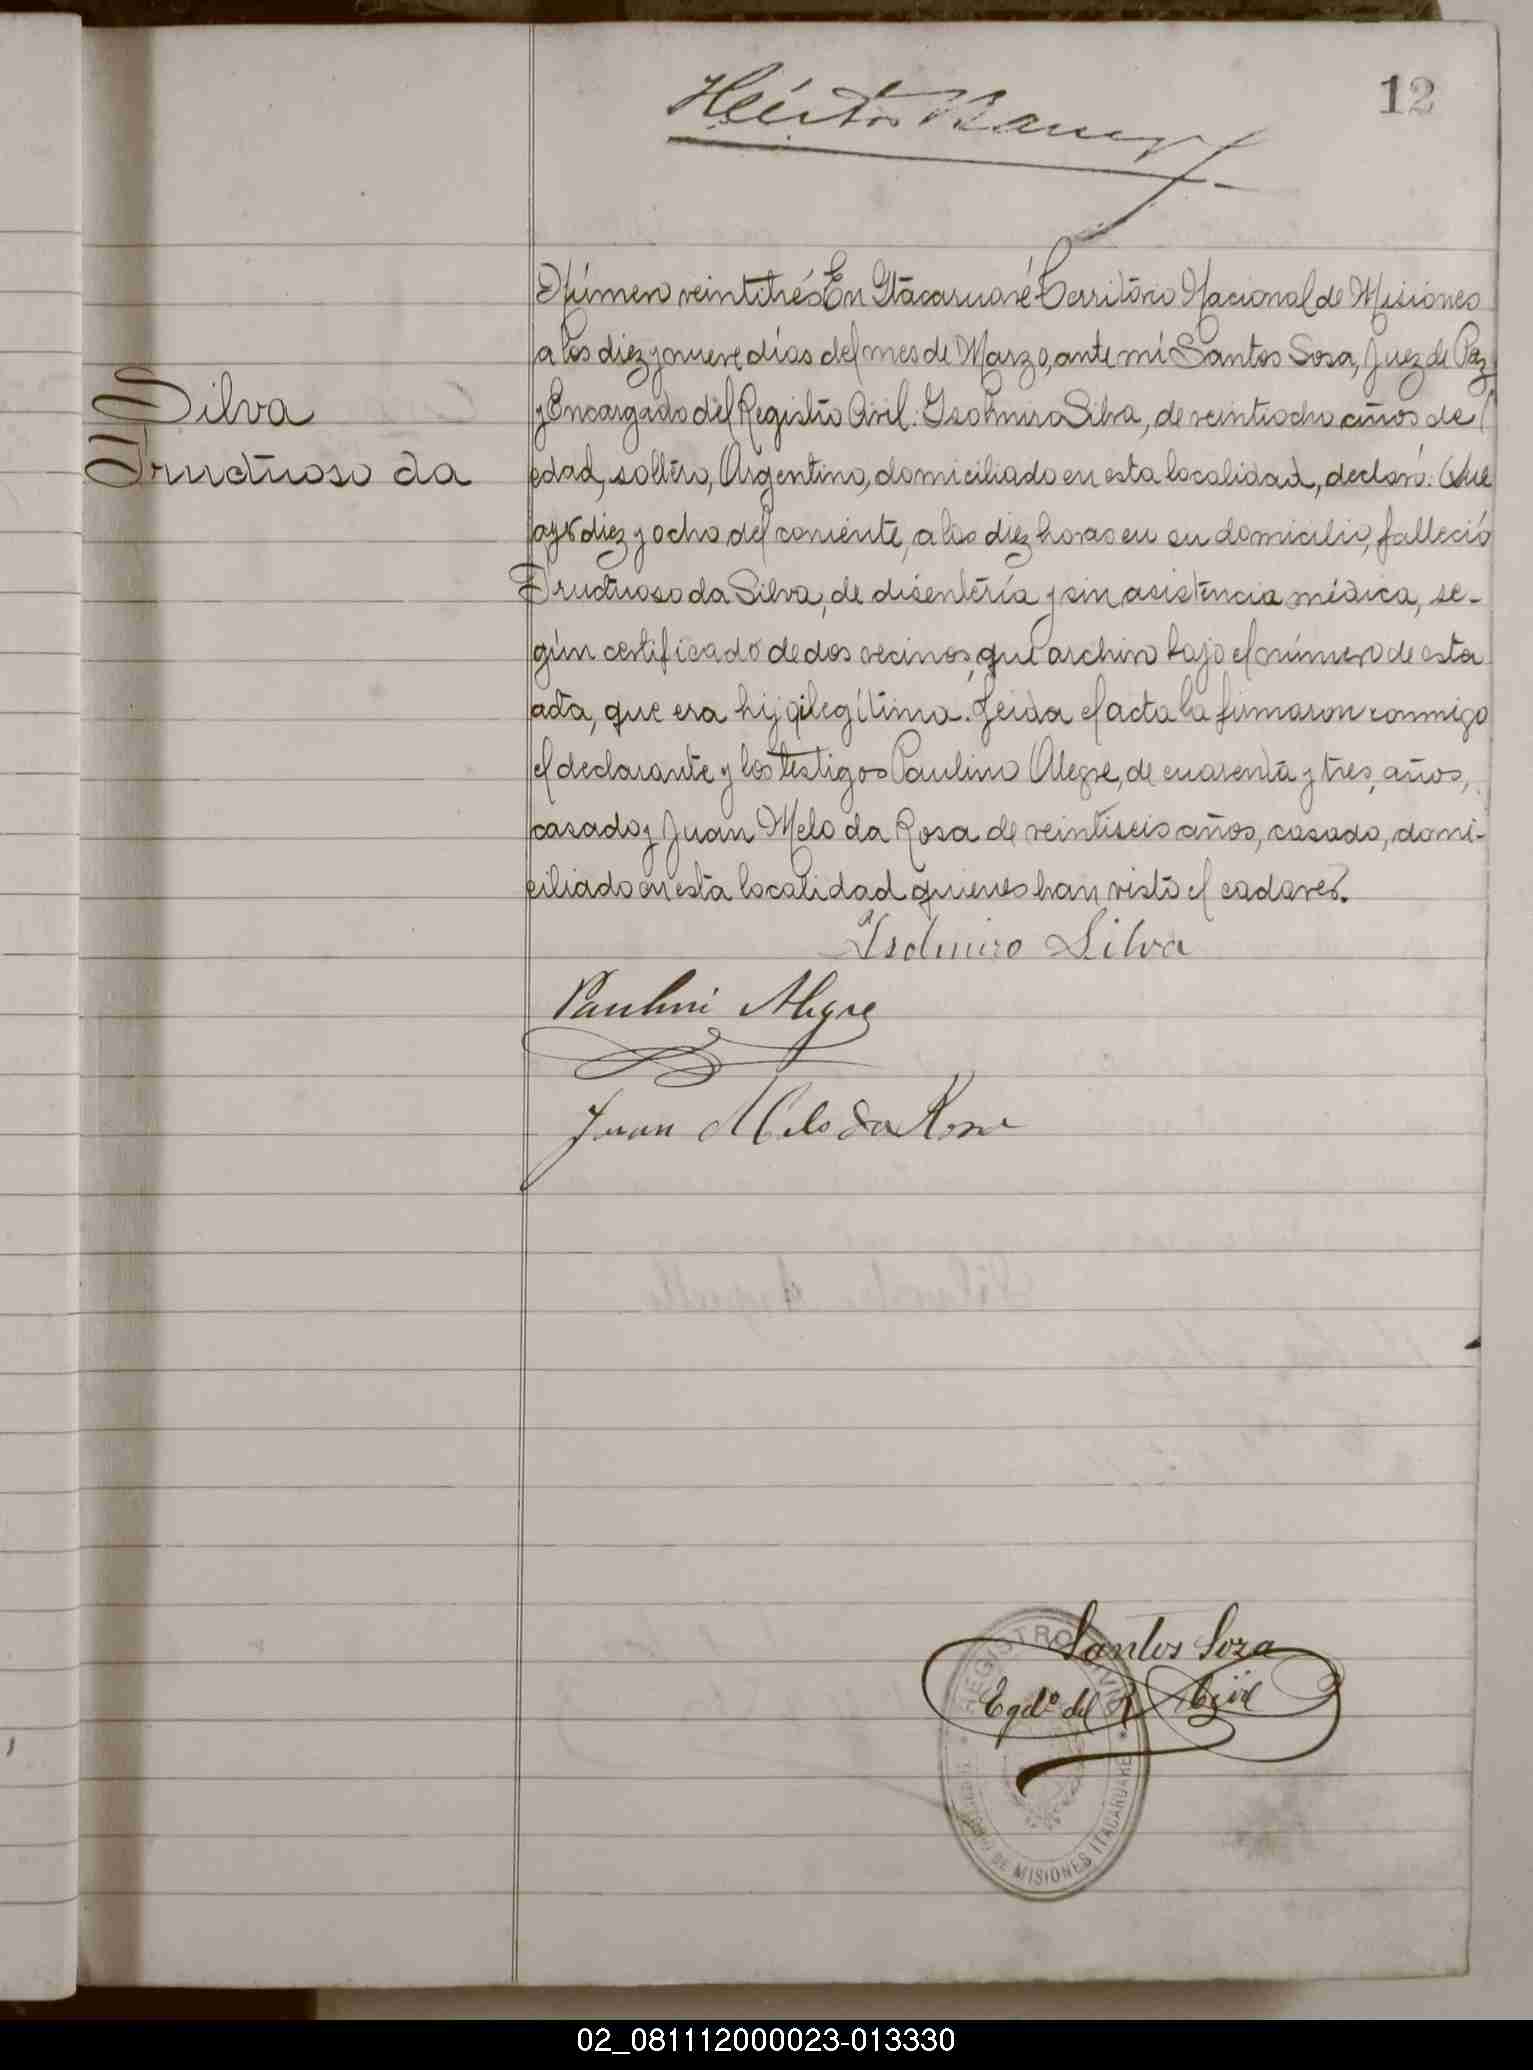 12
Héctor
Número veintitrés En Itacaruaré Territorio Nacional de Misiones
a los diez y nueve días del mes de Marzo, ante mí Santos Sosa, Juez de Paz
Silva
y Encargado del Registro Civil: Isolmiro Silva, de veintiocho años de
Fructuoso da
edad, soltero, Argentino, domiciliado en esta localidad, declaró: Que
ayer diez y ocho del corriente, a las diez horas en su domicilio, falleció
Fructuoso da Silva, de disentería y sin asistencia médica, se-
gún certificado de dos vecinos, que archivo bajo el número de esta
acta, que era hijo ilegítimo. Leida el acta la firmaron conmigo
el declarante y los testigos Paulino Alegre, de cuarenta y tres, años,
casado y Juan Melo da Rosa de veintiseis años, casado, domi-
ciliado en esta localidad quienes han visto el cadaver.
Isolmiro Silva
Paulino Alegre
Juan Melo da Rosa
Santos Soza
Egdo. del R Civil
REGISTRO CIVIL
DE MISIONES ITACARUARE
02_081112000023-013330